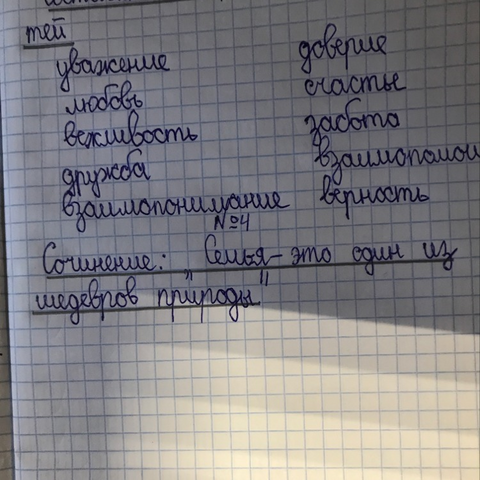 тей
уважение доверие
любовь счастье
вежливость забота
дружба взаимопомощ
взаимопонимание верность
№4
Сочинение: "Семья - это один из
шедевров природы"